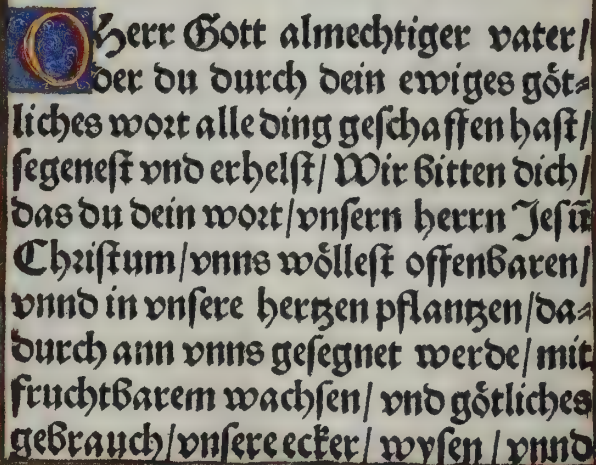 O Herr Gott almechtiger vater/
der du durch dein ewiges göt⸗
liches wort alle ding geschaffen hast/
segenest vnd erhelst/ Wir bitten dich/
das du dein wort/vnsern herrn Jesū
Christum/vnns wöllest offenbaren/
vnnd in vnsere hertzen pflantzen/da⸗
durch ann vnns gesegnet werde/ mit
fruchtbarem wachsen/ vnd götliches
gebrauch/vnsere ecker/ wysen/ vnnd